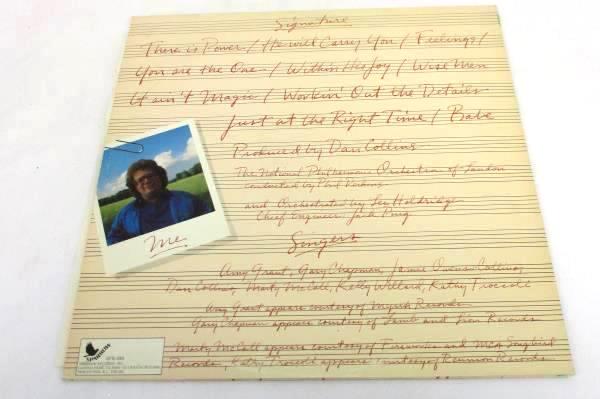 Signature
There is Power / He will Carry You / Feelings /
You are the One / Within His Joy / Wise Men
It ain't Magic / Workin' Out the Details
Just at the Right Time / Babe
Produced by Dan Collins
The National Philharmonic Orchestra of London
conducted by Phil Perkins
and Orchestrated by Lee Holdridge
Chief Engineer Jack Puig
me
Singers
Amy Grant, Gary Chapman, Jamie Owens-Collins,
Dan Collins, Marty McCall, Kelly Willard, Kathy Troccoli
Amy Grant appears courtesy of Myrrh Records
Gary Chapman appears courtesy of Lamb and Lion Records
Marty McCall appears courtesy of Fireworks and MCA Songbird
Records, Kathy Troccoli appears courtesy of Reunion Records
Sparrow